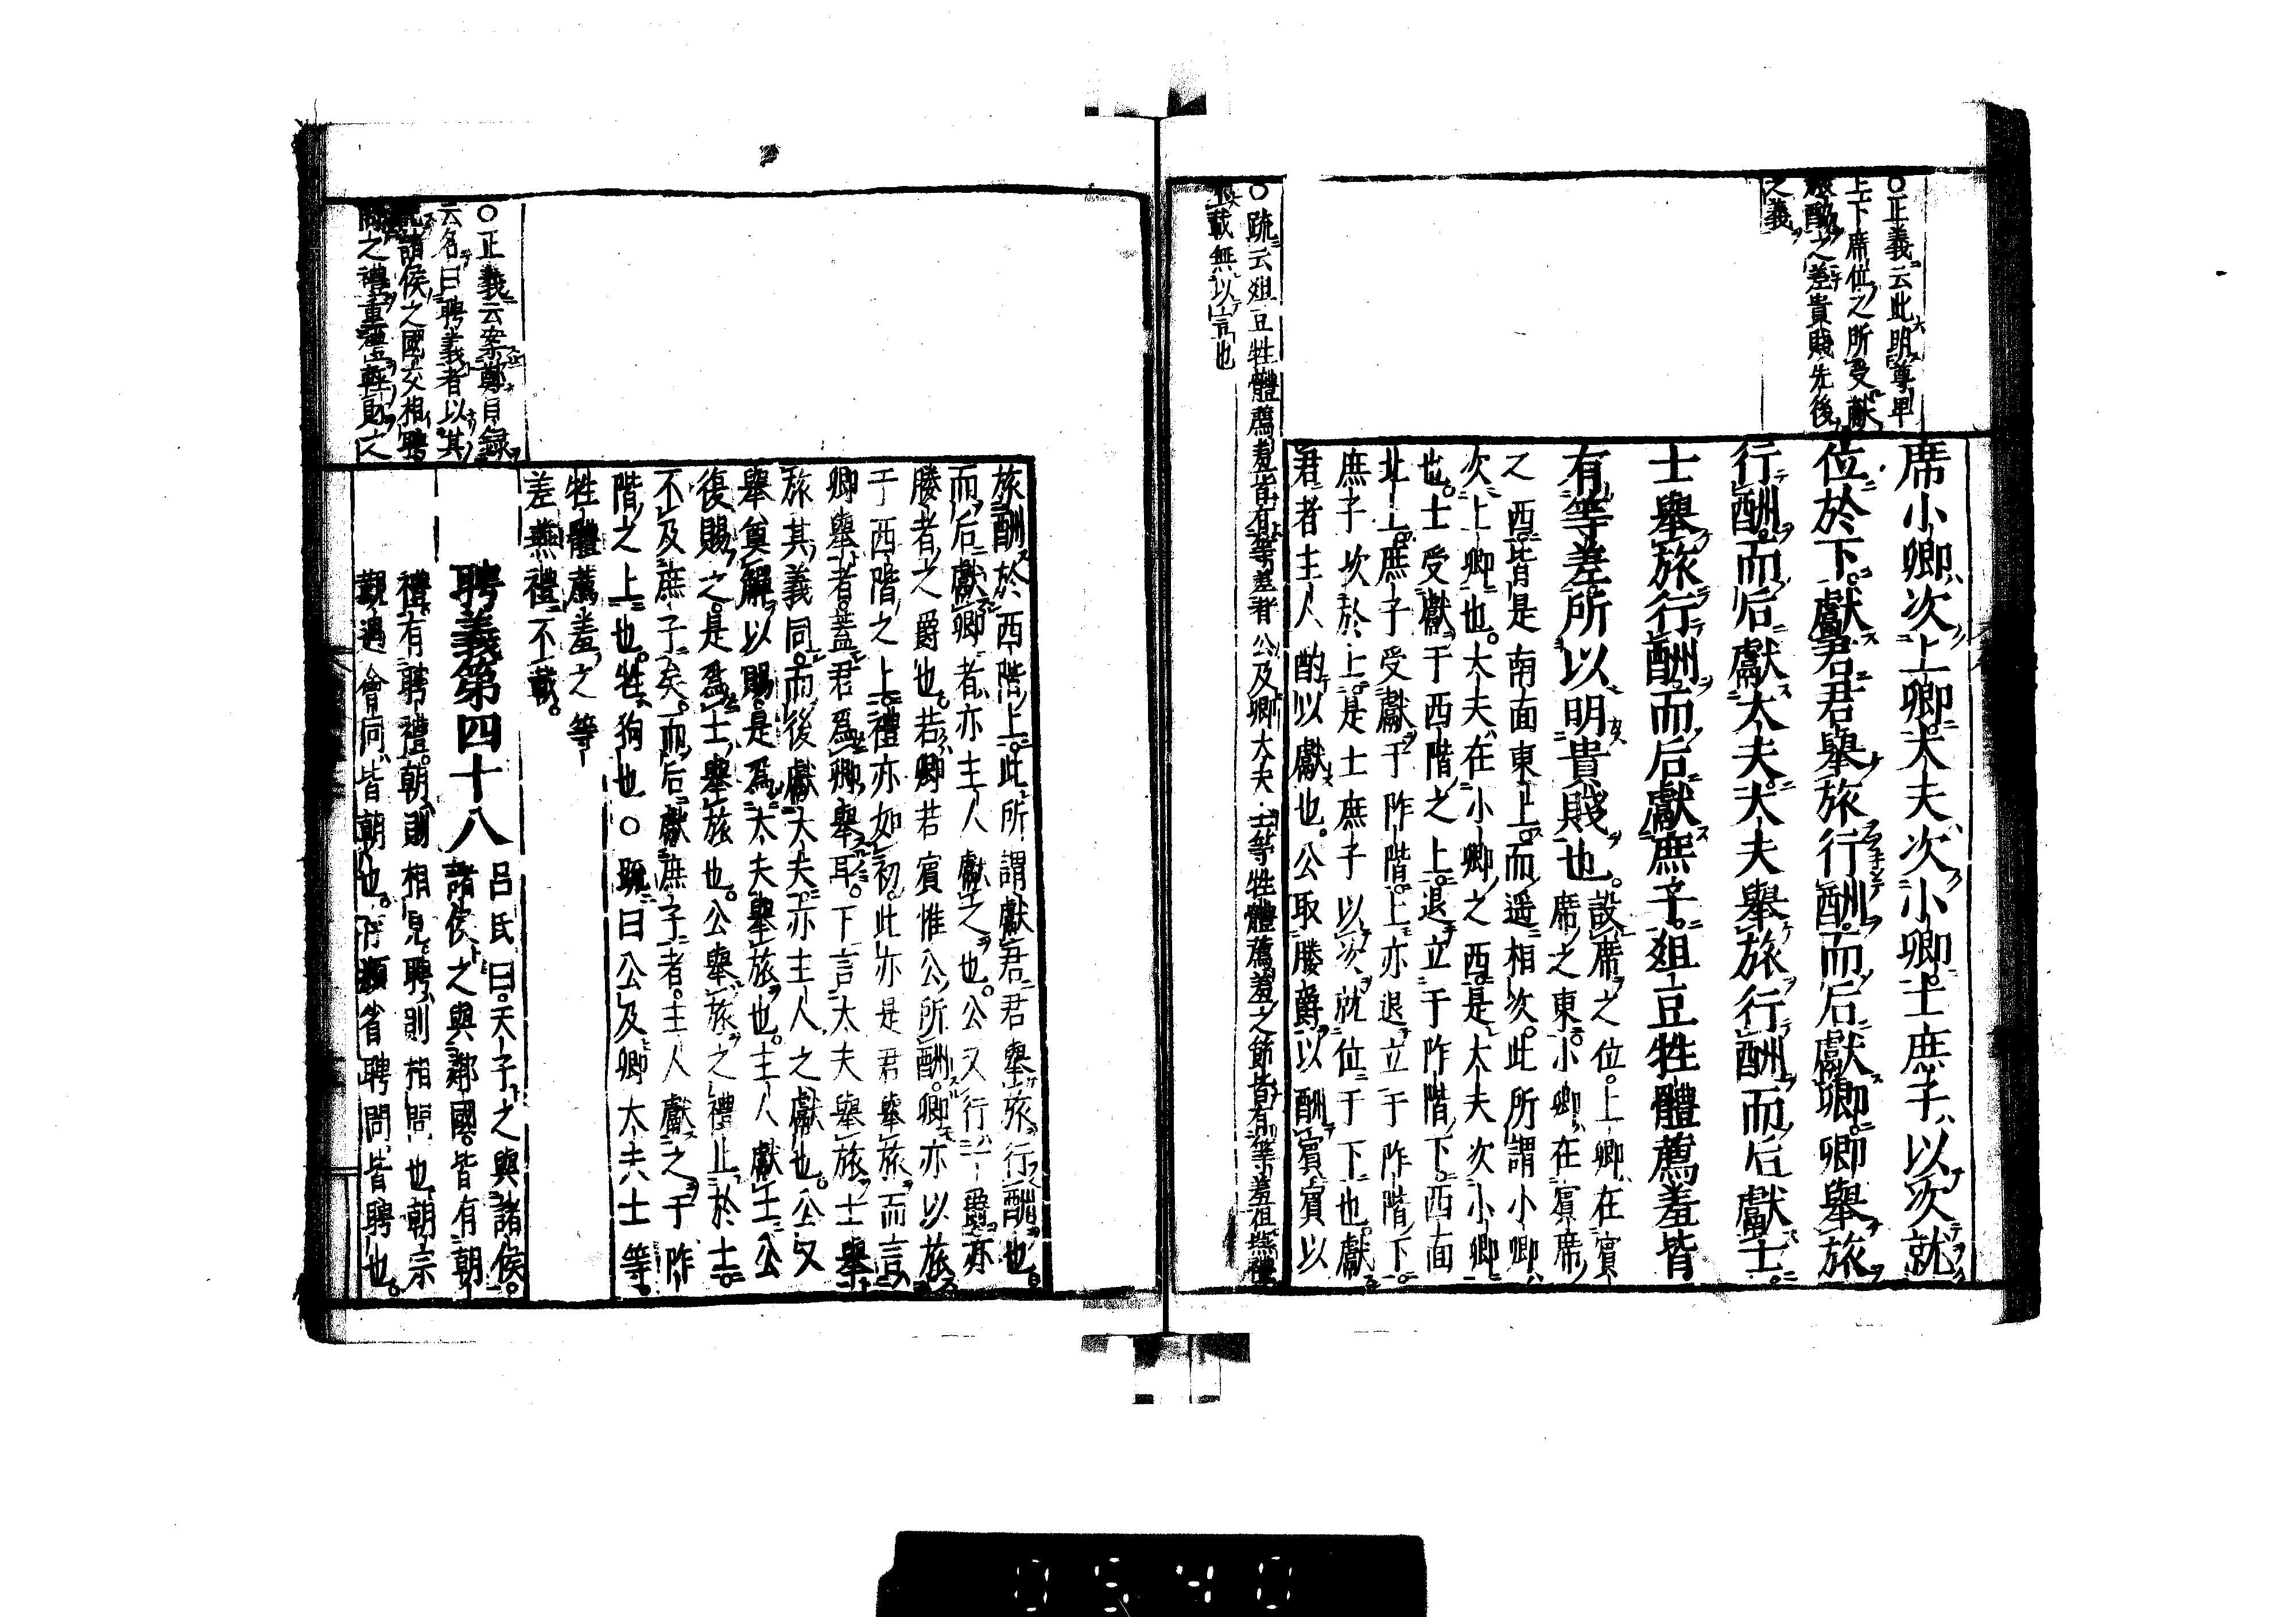 ○正義云此明尊卑
上下席位之所受獻
旅酬之差貴賤先後
之義
席小卿次上卿大夫次小卿士庶子以次就
位於下獻君君舉旅行酬而后獻卿卿舉旅
行酬而后獻大夫大夫舉旅行酬而后獻士
士舉旅行酬而后獻庶子俎豆牲體薦羞皆
有等差所以明貴賤也
設席之位上卿在賓
席之東小卿在賓席
之西皆是南面東上而遥相次此所謂小卿
次上卿也大夫在小卿之西是大夫次小卿
也士受獻于西階之上退立于阼階下西面
北上庶子受獻于阼階上亦退立于阼階下
庶子次於上是士庶子以次就位于下也獻
君者主人酌以獻也公取媵爵以酬賓賓以
○疏云俎豆牲體薦羞皆有等差者公及卿大夫士等牲體薦羞之節皆有等差但燕禮
載無以言也
旅酬於西階上此所謂獻君君舉旅行酬也
而后獻卿者亦主人獻之也公又行一爵亦
媵者之爵也若卿若賓惟公所酬卿亦以旅
于西階之上禮亦如初此亦是君舉旅而言
卿舉者蓋君爲卿舉耳下言大夫舉旅士舉
旅其義同而後獻大夫亦主人之獻也公又
舉奠觶以賜是爲大夫舉旅也主人獻士公
復賜之是爲士舉旅也公舉旅之禮止於士
不及庶子矣而后獻庶子者主人獻之于阼
階之上也牲狗也○疏曰公及卿大夫士等
牲體薦羞之等
差燕禮不載
○正義云案鄭目録
云名曰聘義者以其
記諸侯之國交相聘
問之禮重禮輕財之
聘義第四十八
呂氏曰天子之與諸侯
諸侯之與鄰國皆有朝
禮有聘禮朝則相見聘則相問也朝宗
覲遇會同皆朝也存頫省聘問皆聘也